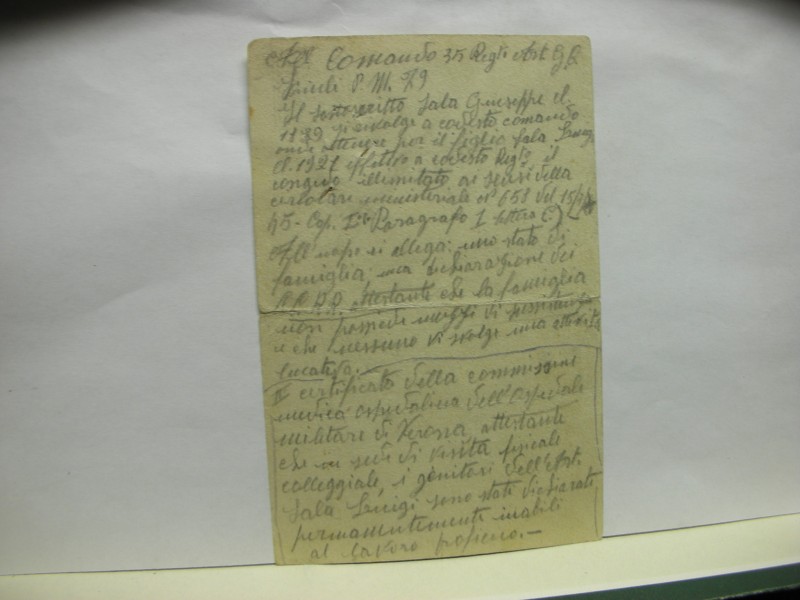 Al Comando 35 Regt Art G.a
Friuli P. M. 79
Il sottoscritto Sala Giuseppe cl.
1879 si rivolge a codesto comando
onde ottenere per il figlio Sala Luigi
cl. 1921 effettivo a codesto Regto il
congedo illimitato ai sensi della
circolare ministeriale n° 658 del
45 - Cap. Paragrafo I lettera C)
All'uopo si allega: uno stato di
famiglia; una dichiarazione dei
attestante che la famiglia
non possiede mezzi di sussistenza
e che nessuno vi svolge una attività
lucativa.
certificato della commissione
medica ospedaliera dell'Ospedale
militare di Verona, attestante
che in sede di visita fiscale
colleggiale, i genitori dell'
Sala Luigi sono stati dichiarati
permanentemente inabili
al lavoro proficuo. -